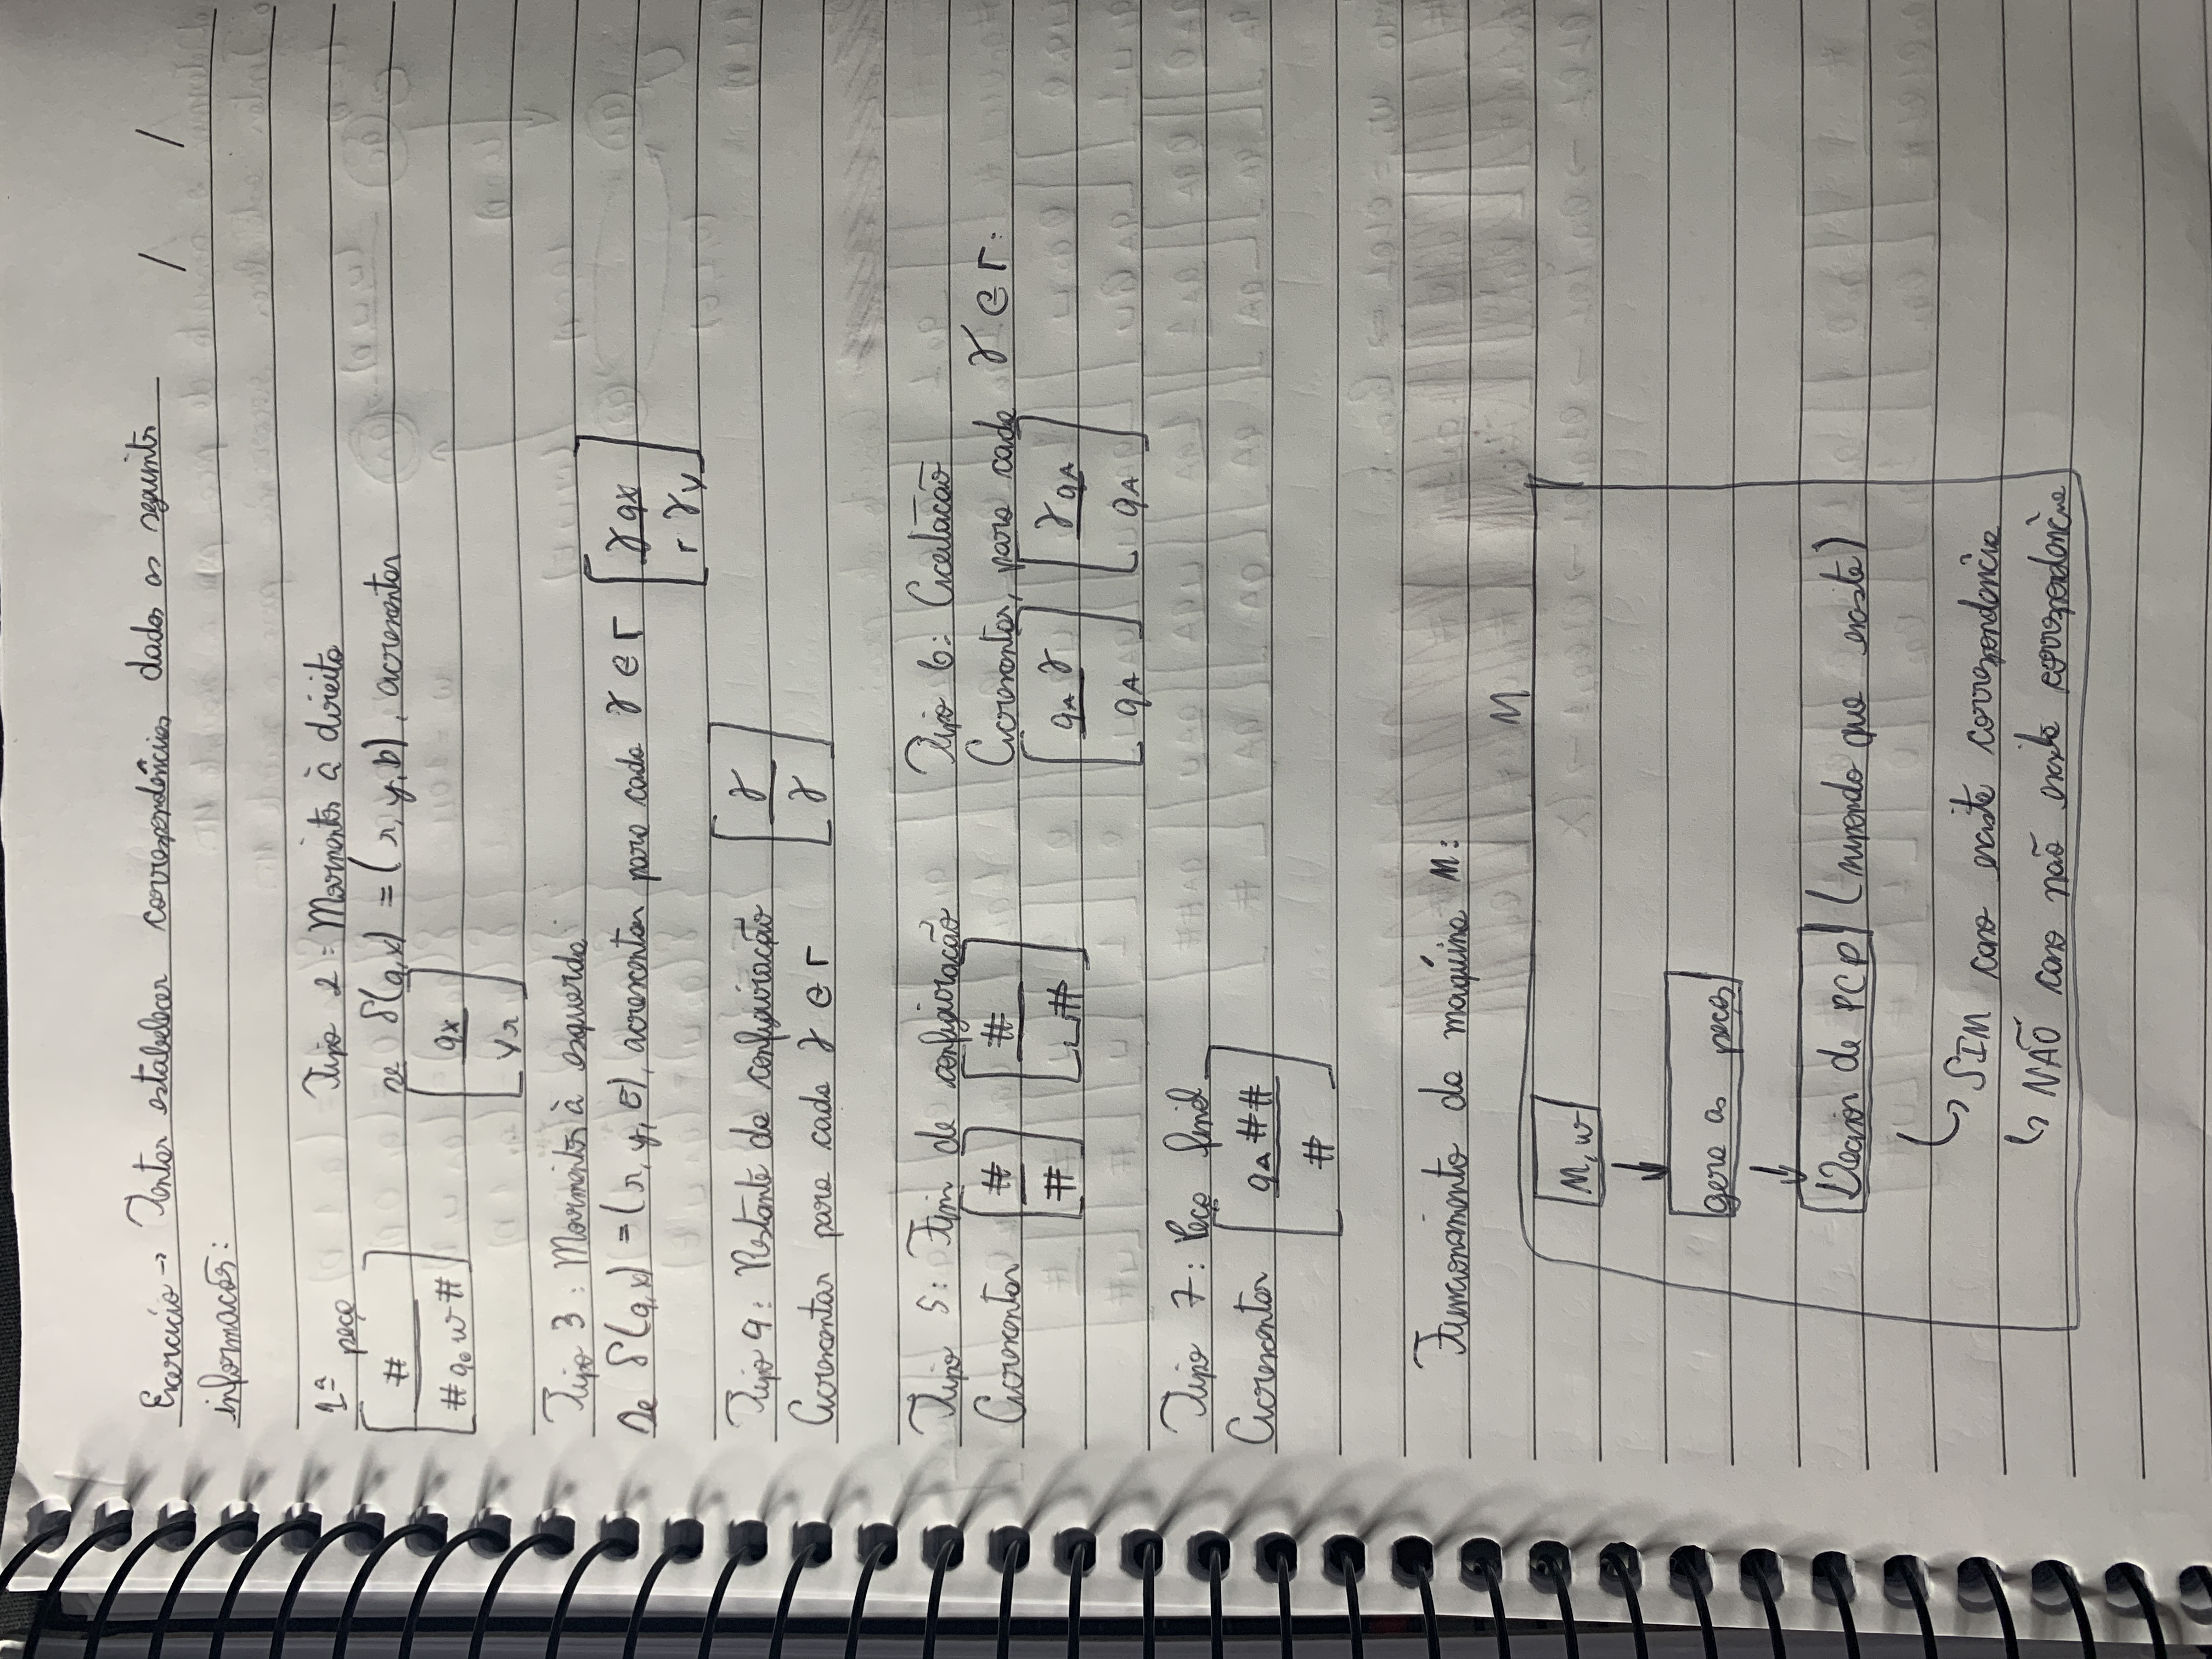 Exercício → Tentar estabelecer correspondências dados as seguints / /
informacões:
1ª peça Tipo 2: Movimentos à direita
[# / #q₀w#] se δ(q,x) = (r, y, D), acrescentar
[qx / yr]
Tipo 3: Movimentos à esquerda
Se δ(q,x) = (r, y, E), acrescentar para cada γ ∈ Γ [γqx / rγy]
Tipo 4: Restante da configuração [γ / γ]
Acrescentar para cada γ ∈ Γ
Tipo 5: Fim de configuração Tipo 6: Aceitação
Acrescentar [# / #] [# / ⊔#] Acrescentar, para cada γ ∈ Γ:
[q_A γ / q_A] [γ q_A / q_A]
Tipo 7: Peça final
Acrescentar [q_A## / #]
Funcionamento da maquína M:
M
M, w
↓
gera as peças
↓
Decisor de PCP (supondo que existe)
↳ SIM caso existe correspondência
↳ NÃO caso não exista correspondência